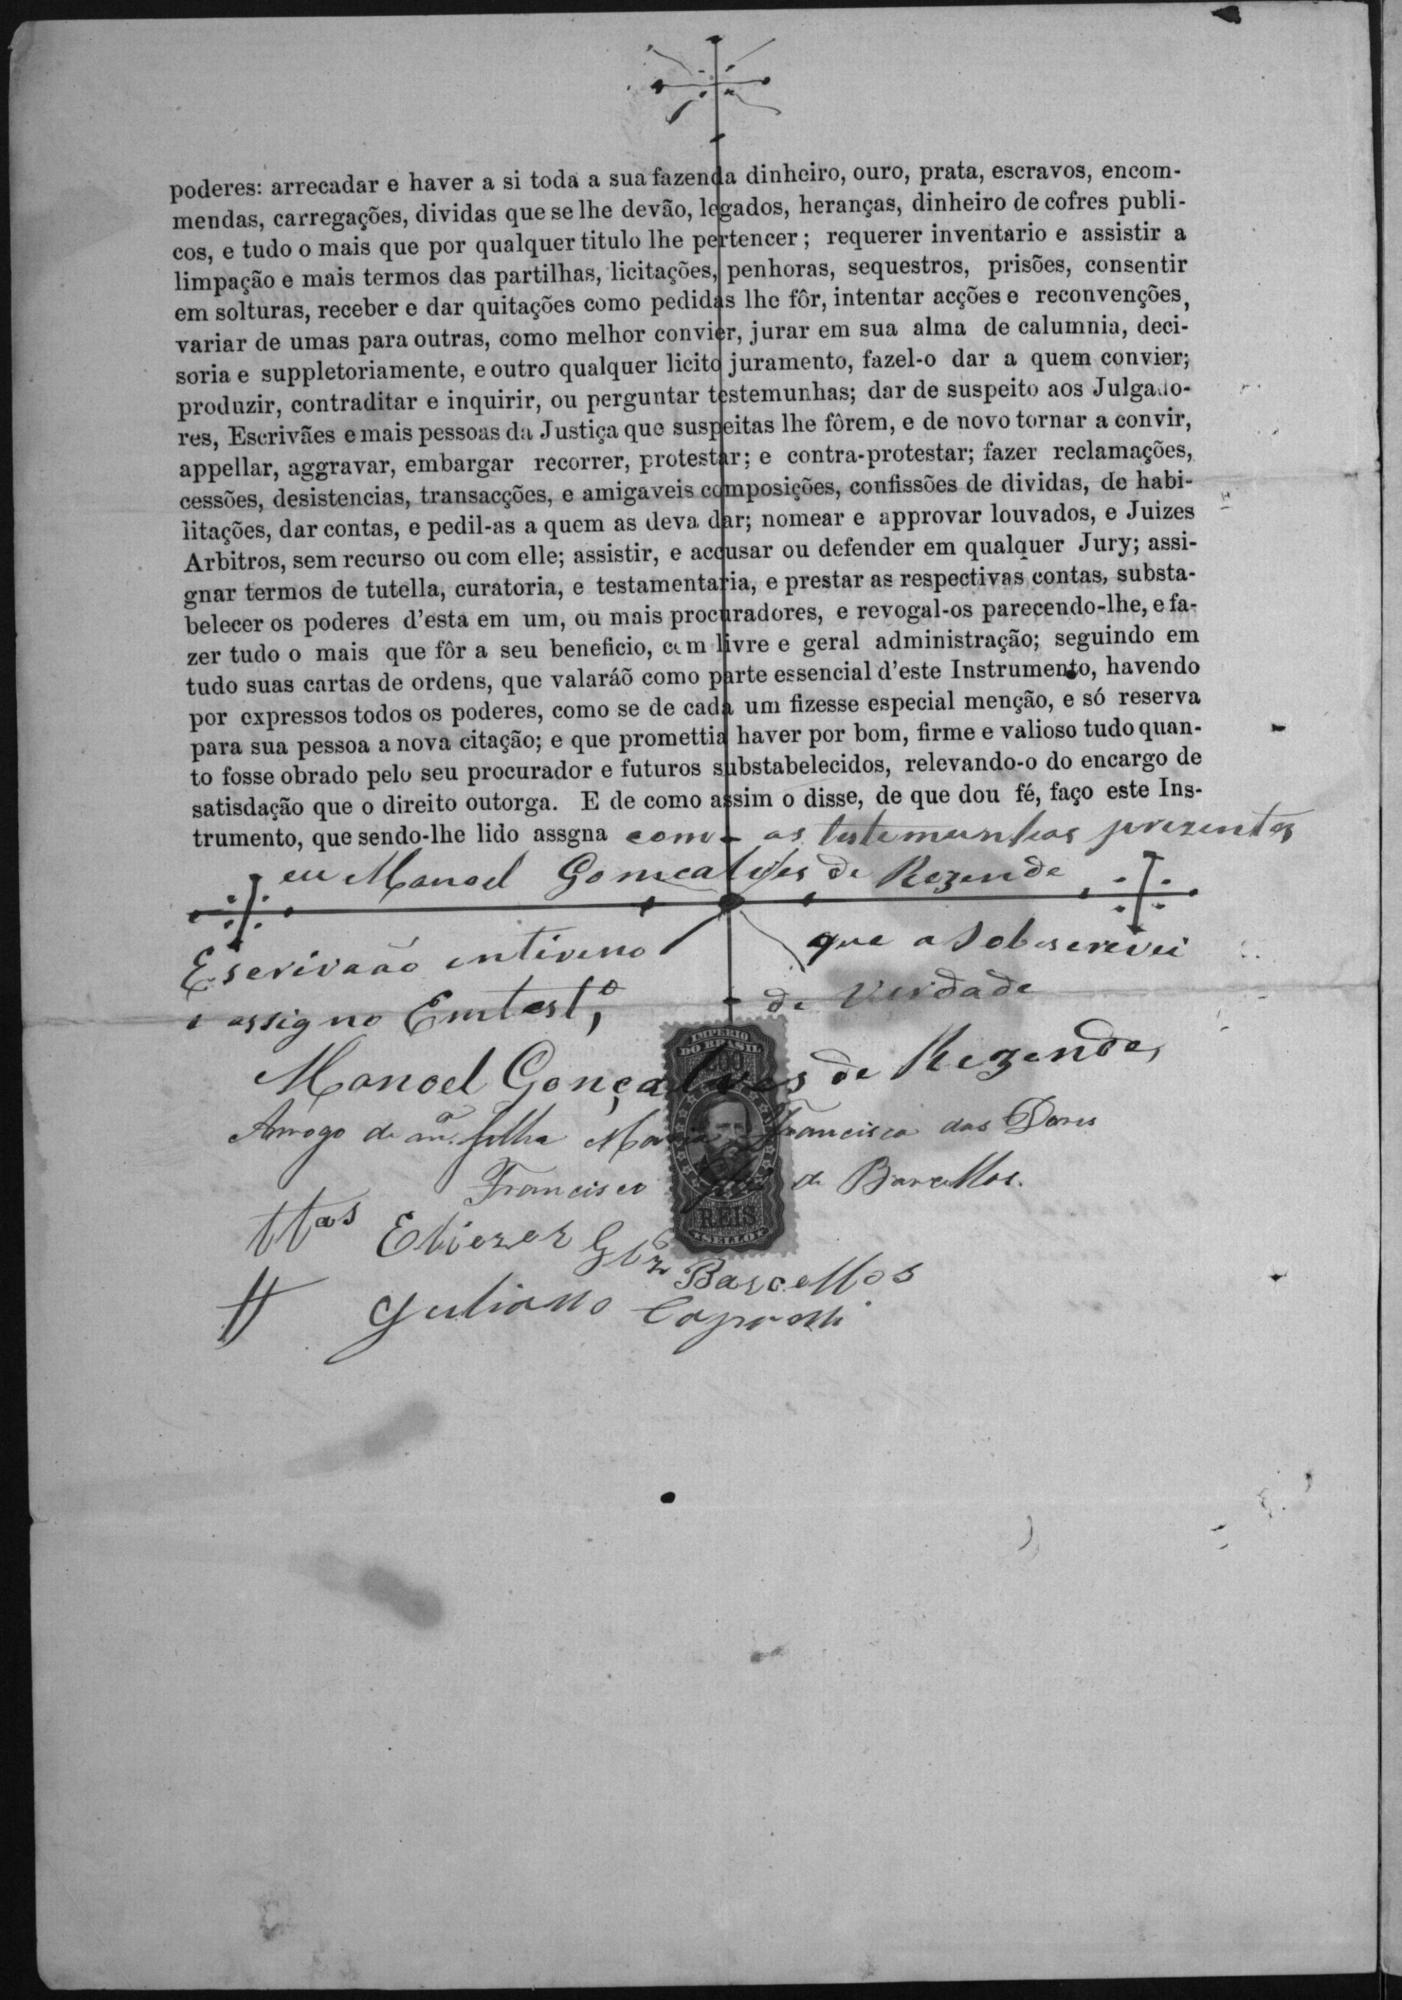 poderes: arrecadar e haver a si toda a sua fazenda dinheiro, ouro, prata, escravos, encom-
mendas, carregações, dividas que se lhe devão, legados, heranças, dinheiro de cofres publi-
cos, e tudo o mais que por qualquer titulo lhe pertencer; requerer inventario e assistir a
limpação e mais termos das partilhas, licitações, penhoras, sequestros, prisões, consentir
em solturas, receber e dar quitações como pedidas lhe fôr, intentar acções e reconvenções,
variar de umas para outras, como melhor convier, jurar em sua alma de calumnia, deci-
soria e suppletoriamente, e outro qualquer licito juramento, fazel-o dar a quem convier;
produzir, contraditar e inquirir, ou perguntar testemunhas; dar de suspeito aos Julgado-
res, Escrivães e mais pessoas da Justiça que suspeitas lhe fôrem, e de novo tornar a convir,
appellar, aggravar, embargar recorrer, protestar; e contra-protestar; fazer reclamações,
cessões, desistencias, transacções, e amigaveis composições, confissões de dividas, de habi-
litações, dar contas, e pedil-as a quem as deva dar; nomear e approvar louvados, e Juizes
Arbitros, sem recurso ou com elle; assistir, e accusar ou defender em qualquer Jury; assi-
gnar termos de tutella, curatoria, e testamentaria, e prestar as respectivas contas, substa-
belecer os poderes d'esta em um, ou mais procuradores, e revogal-os parecendo-lhe, e fa-
zer tudo o mais que fôr a seu beneficio, com livre e geral administração; seguindo em
tudo suas cartas de ordens, que valaráõ como parte essencial d'este Instrumento, havendo
por expressos todos os poderes, como se de cada um fizesse especial menção, e só reserva
para sua pessoa a nova citação; e que promettia haver por bom, firme e valioso tudo quan-
to fosse obrado pelo seu procurador e futuros substabelecidos, relevando-o do encargo de
satisdação que o direito outorga. E de como assim o disse, de que dou fé, faço este Ins-
trumento, que sendo-lhe lido assgna com as testemunhas prezentes
eu Manoel Goncalves de Rezende
Escrivaão intireno que a Sobescrevei
e assigno Emtest.º de Verdade
Manoel Gonçalves de Rezende
IMPERIO
DO BRASIL
200
Arrogo de mª filha Maria Francisca das Dores
Francisco Glz de Barcellos.
REIS
SELLO
ttas Eliezer Glz Barcellos
Juliano